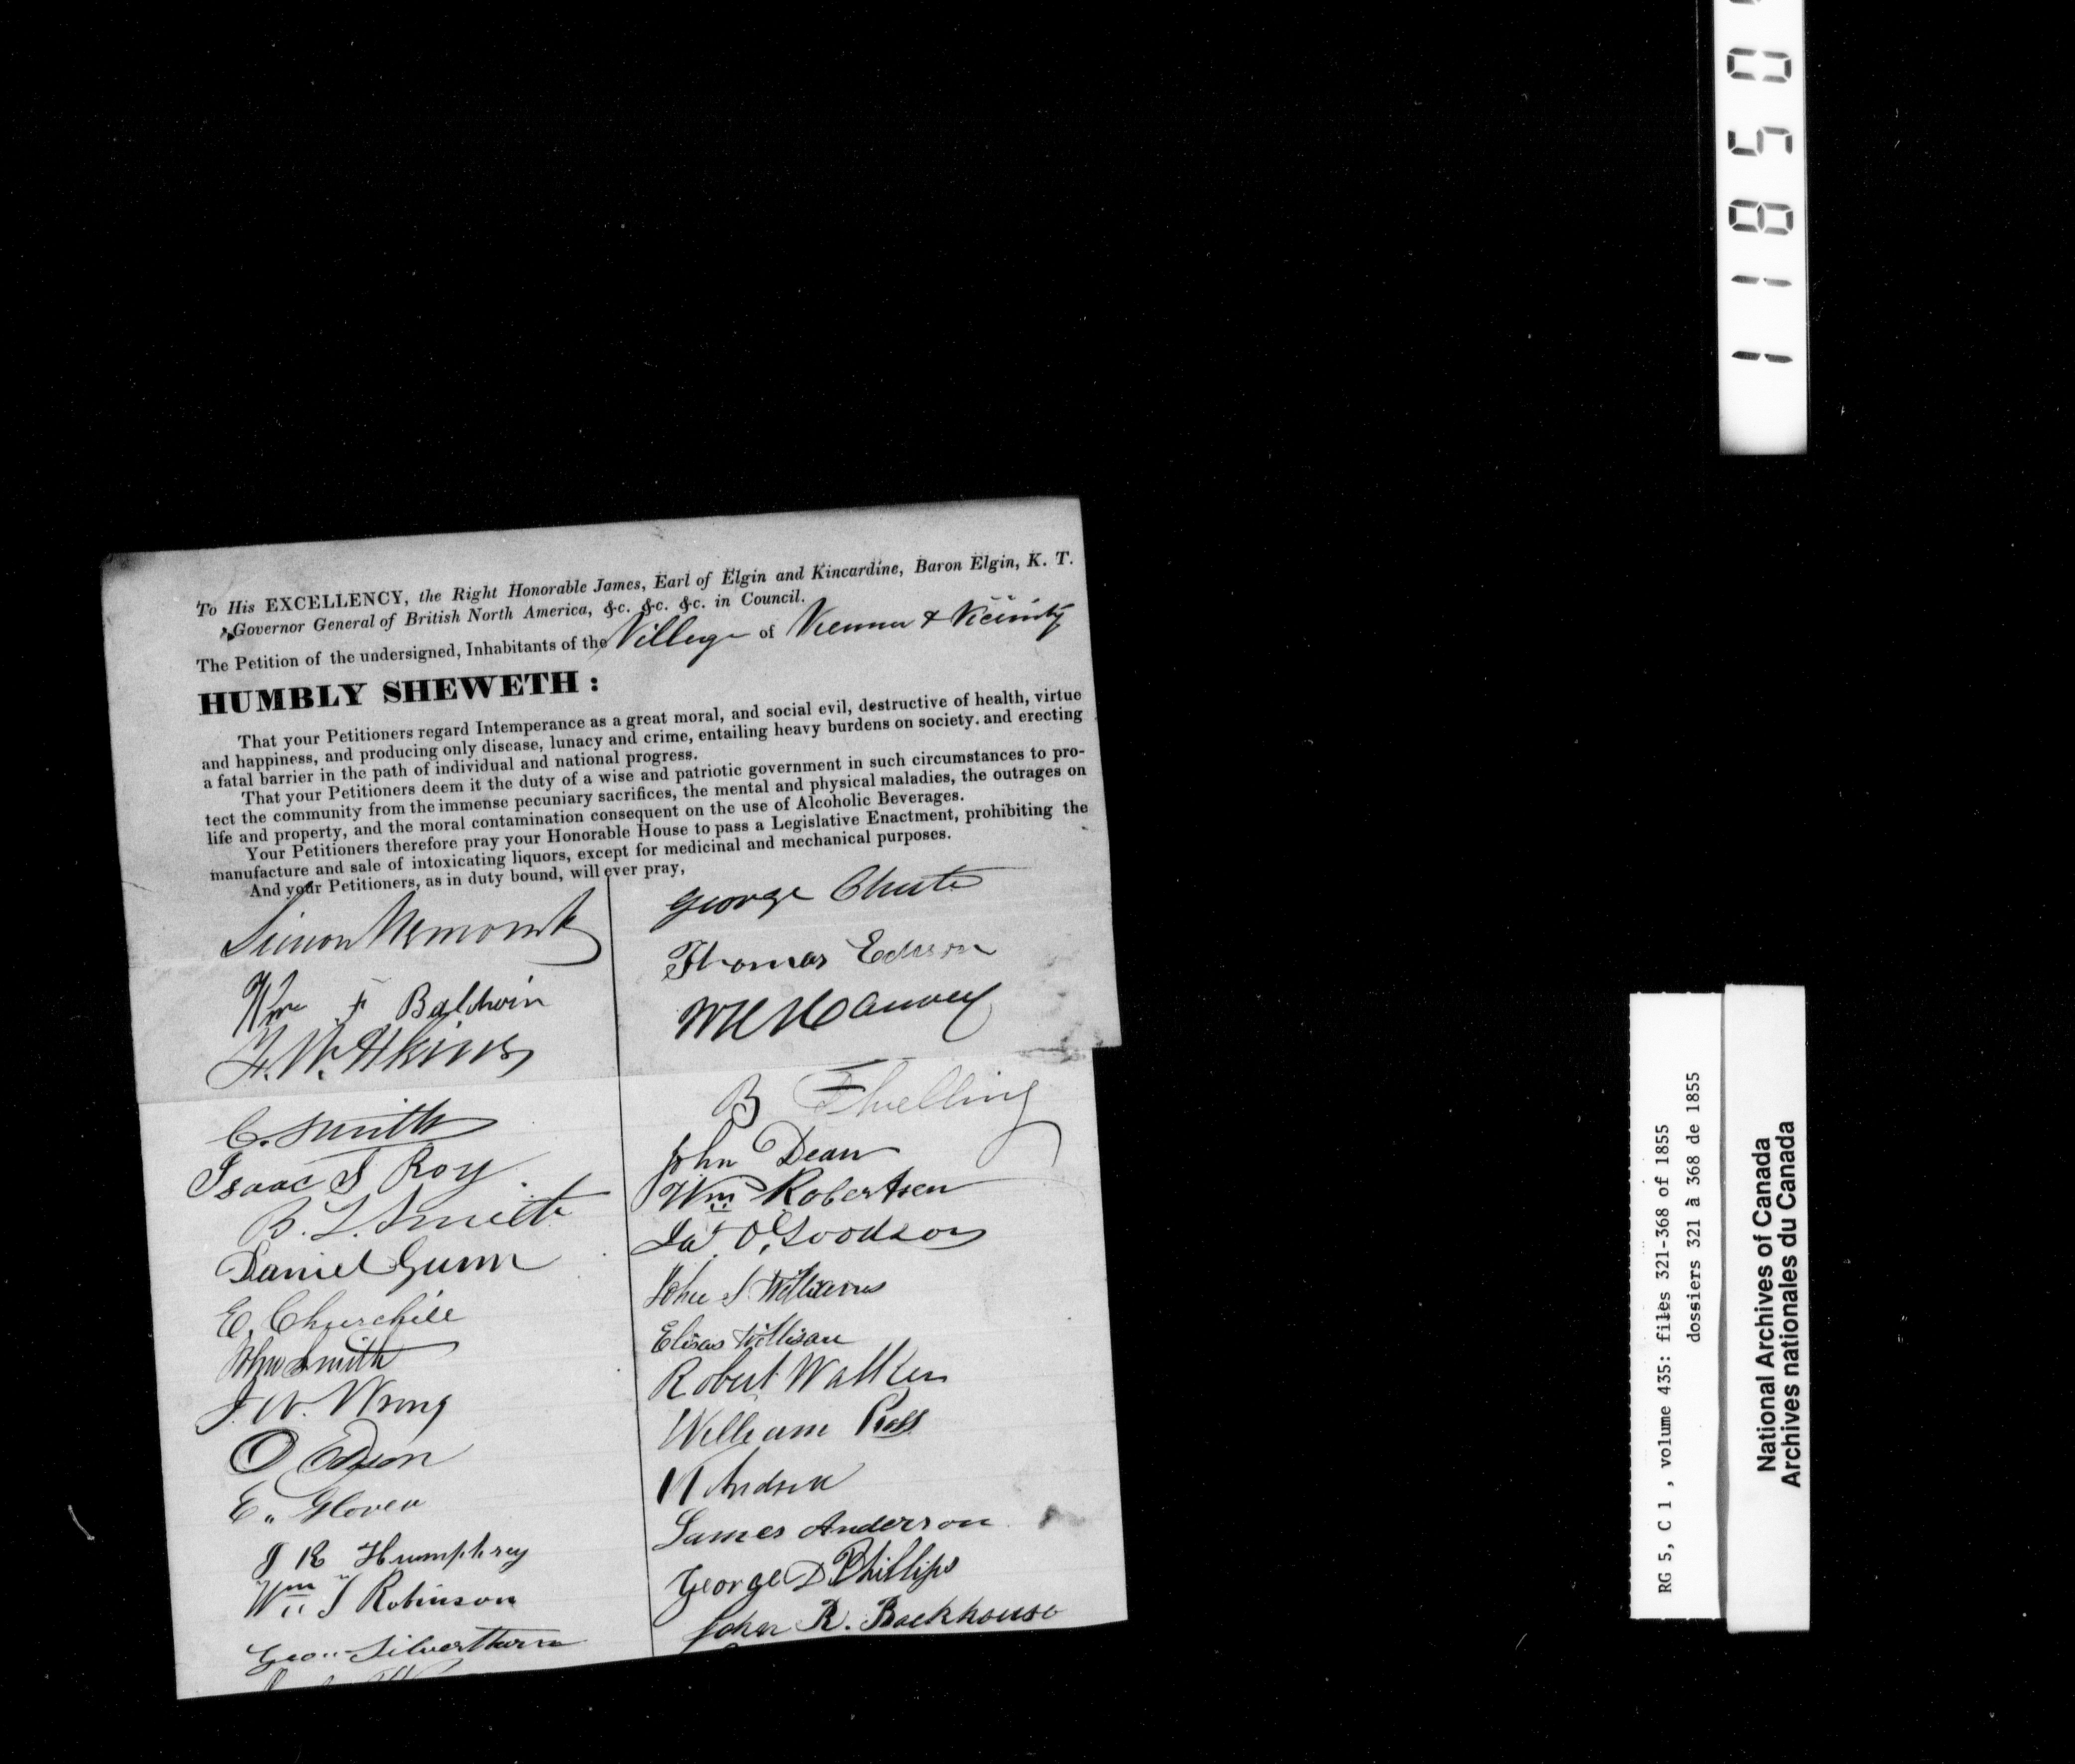 To His EXCELLENCY, the Right Honorable James, Earl of Elgin and Kincardine, Baron Elgin, K. T.
Governor General of British North America, &c. &c. &c. in Council.
The Petition of the undersigned, Inhabitants of the Village of Vienna & Vicinity
HUMBLY SHEWETH :
That your Petitioners regard Intemperance as a great moral, and social evil, destructive of health, virtue
and happiness, and producing only disease, lunacy and crime, entailing heavy burdens on society. and erecting
a fatal barrier in the path of individual and national progress.
That your Petitioners deem it the duty of a wise and patriotic government in such circumstances to pro-
tect the community from the immense pecuniary sacrifices, the mental and physical maladies, the outrages on
life and property, and the moral contamination consequent on the use of Alcoholic Beverages.
Your Petitioners therefore pray your Honorable House to pass a Legislative Enactment, prohibiting the
manufacture and sale of intoxicating liquors, except for medicinal and mechanical purposes.
And your Petitioners, as in duty bound, will ever pray,
Simon
Wm F Baldwin
C. Smith
Isaac S Roy
B. L. Smith
Daniel Gunn
E. Churchill
John Smith
J. W. Wrong
O Edison
E. Glover
J R Humphrey
Wm J Robinson
Geo. Silverthorn
George Chute
Thomas Edison
B
John Dean
Wm Robertson
Ja. O. Goodson
John J. Williams
Elisas Willison
Robert Walker
William Ross
James Anderson
George D Phillips
John R. Backhouse
1 1 8 5 0
RG 5, C 1 , volume 435: files 321-368 of 1855
dossiers 321 à 368 de 1855
National Archives of Canada
Archives nationales du Canada